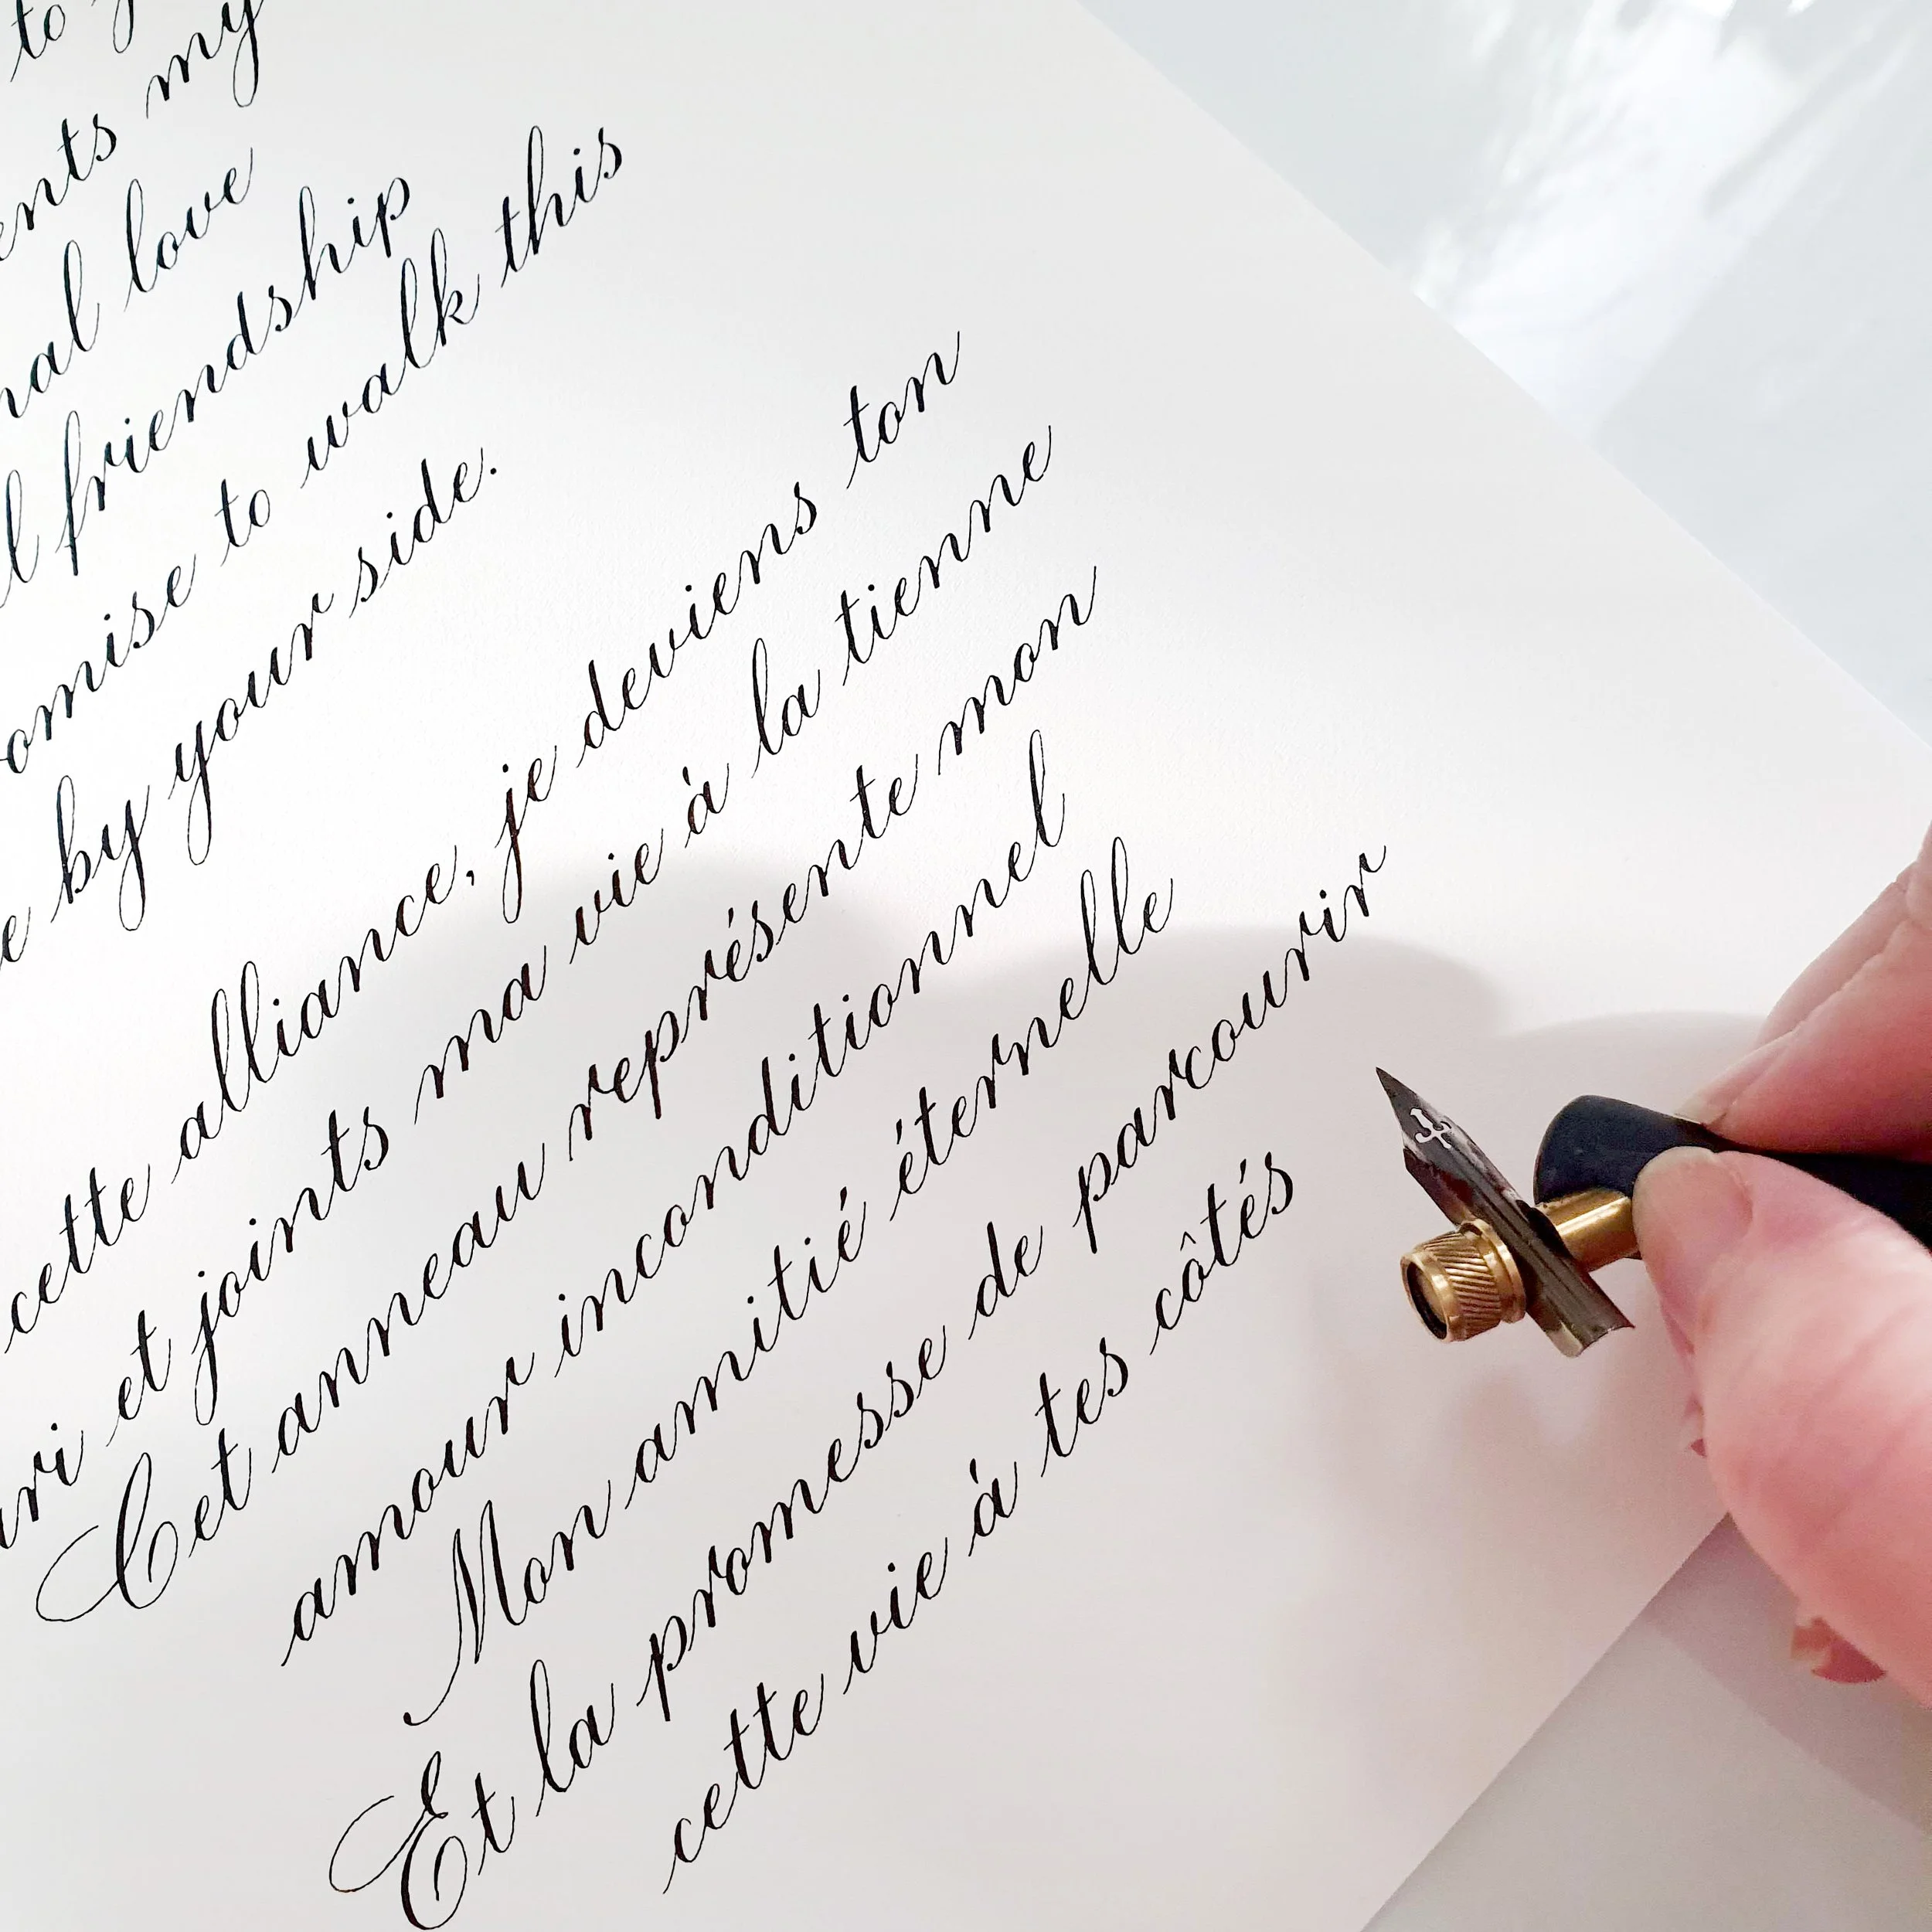 to
my
love
friendship
to walk this
by your side.
cette alliance, je deviens ton
et joints ma vie à la tienne
Cet anneau représente mon
amour inconditionnel
Mon amitié éternelle
Et la promesse de parcourir
cette vie à tes côtés